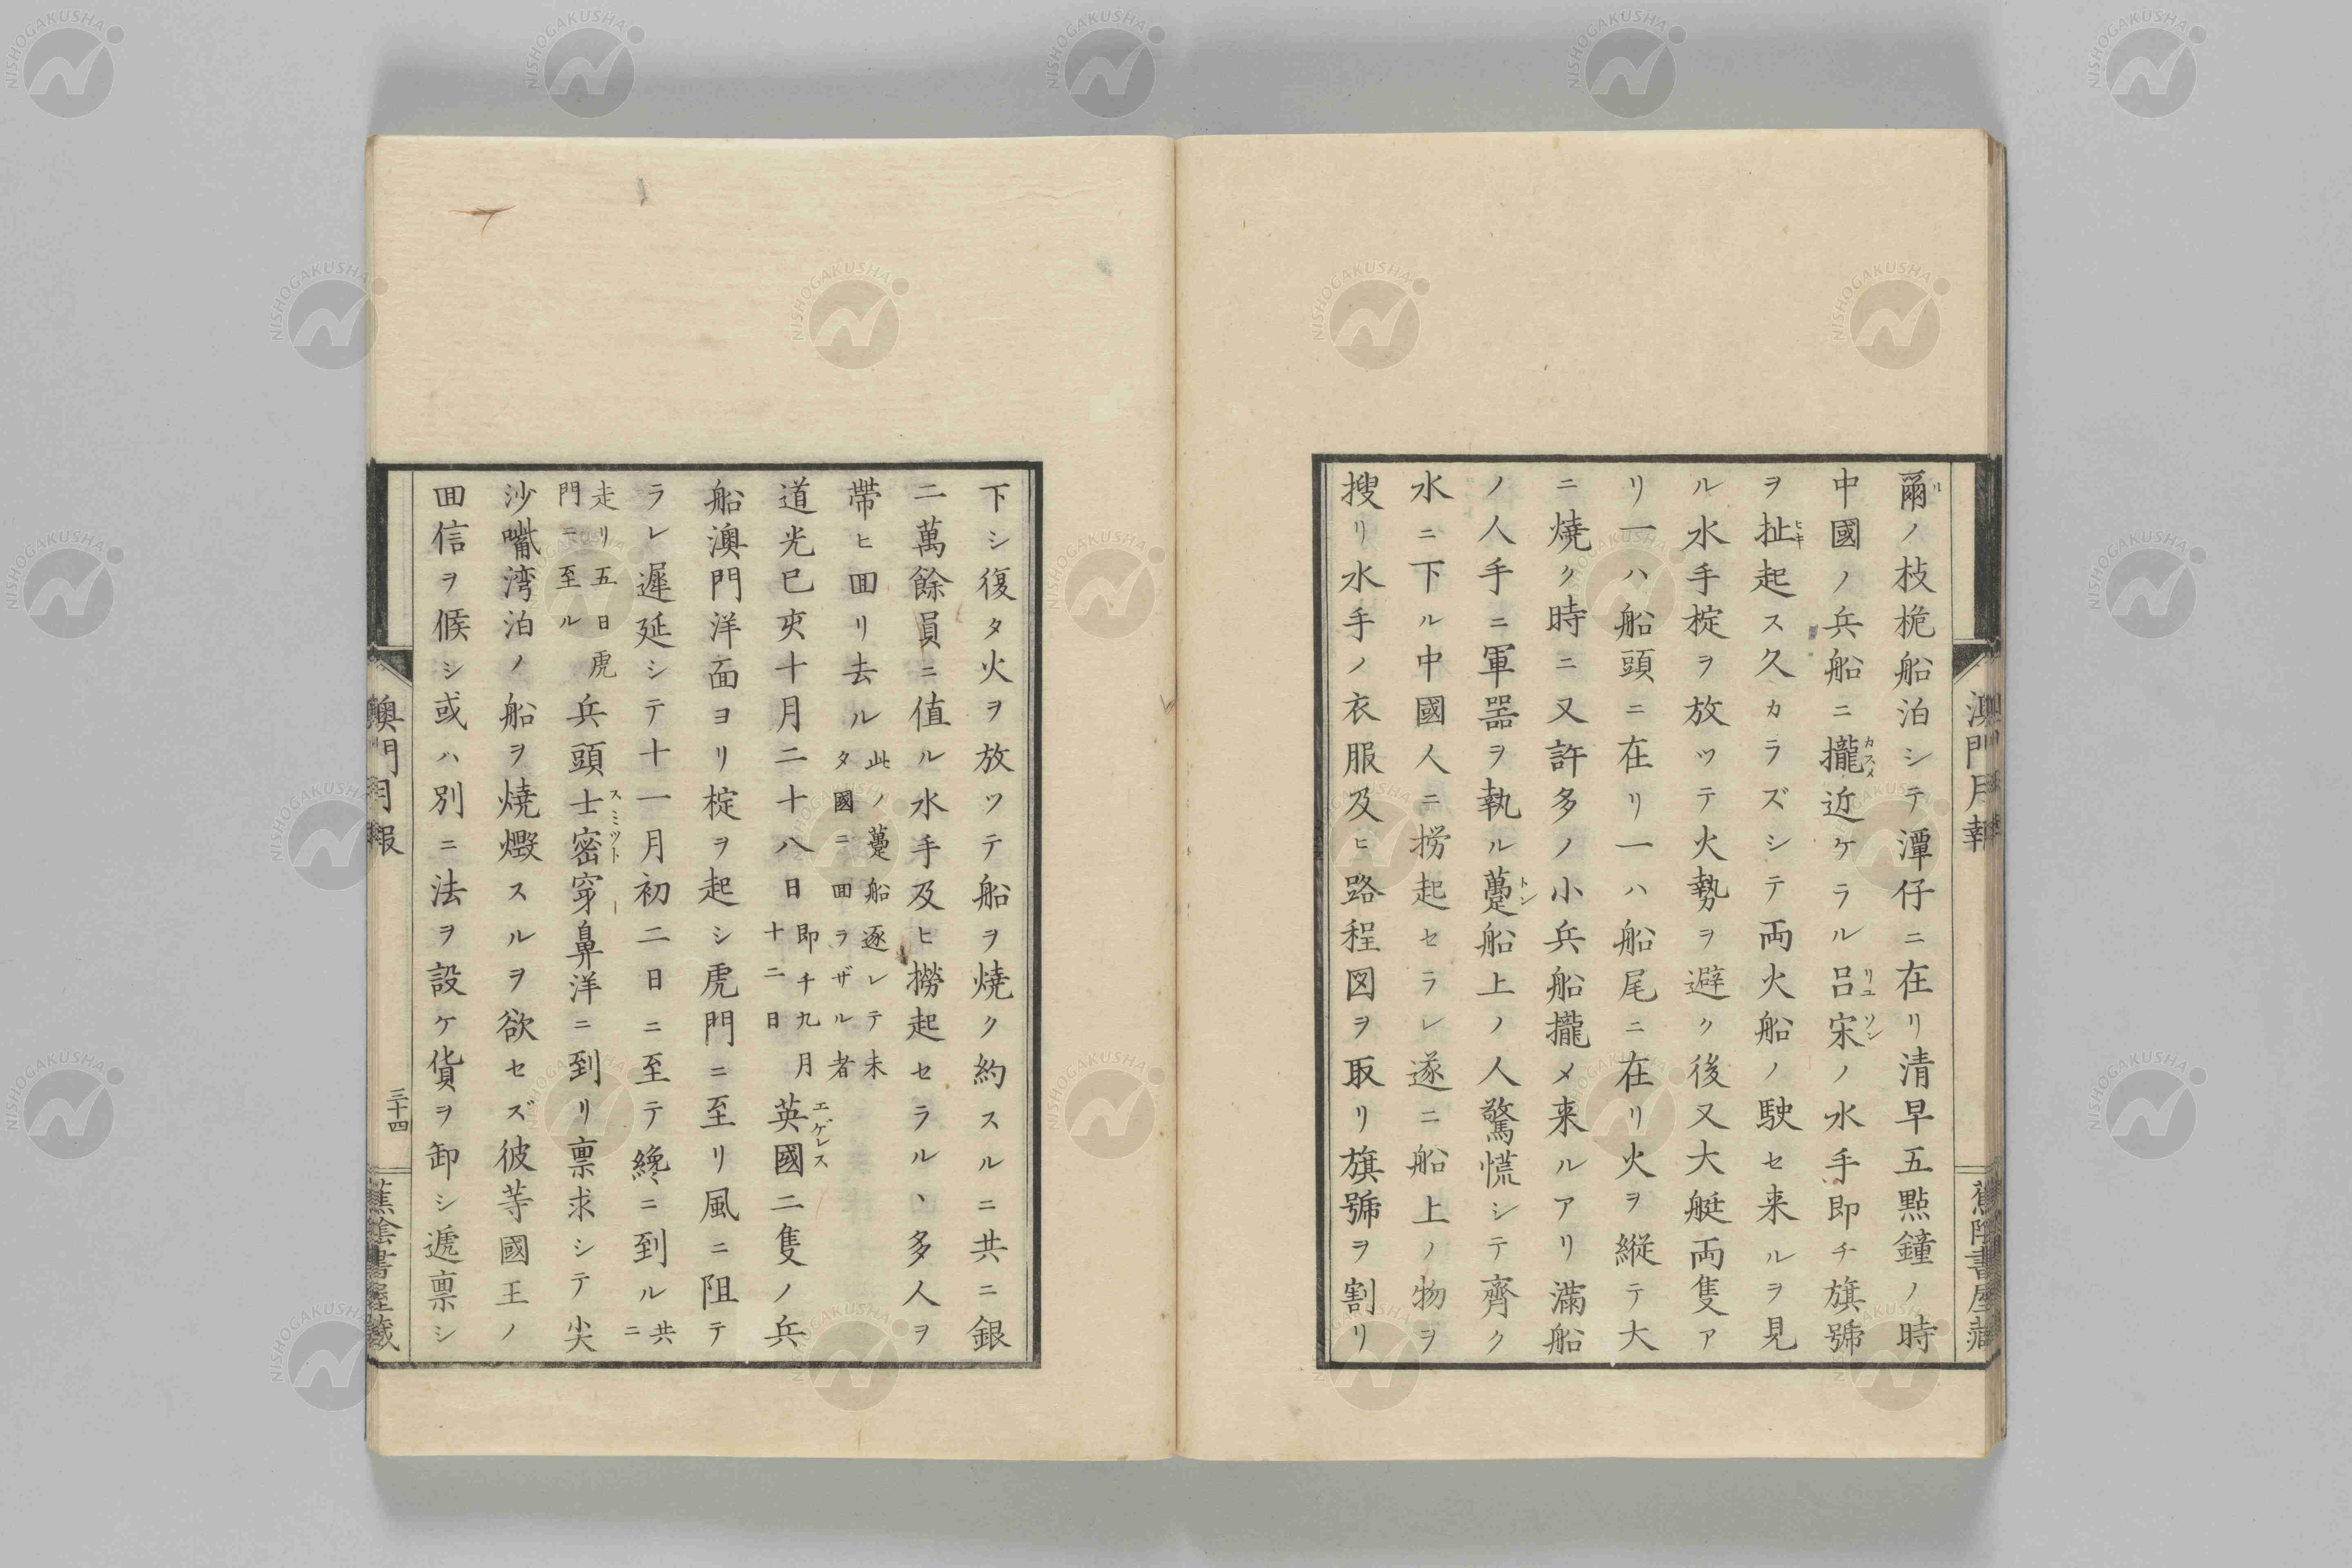 爾ノ枝桅船泊シテ潭仔ニ在リ清早五點鐘ノ時
中國ノ兵船ニ攏近ケラル呂宋ノ水手即チ旗號
ヲ扯起ス久カラズシテ両火船ノ駛セ来ルヲ見
ル水手椗ヲ放ッテ火勢ヲ避ク後又大艇両隻ア
リ一ハ船頭ニ在リ一ハ船尾ニ在リ火ヲ縦テ大
ニ燒ク時ニ又許多ノ小兵船攏メ来ルアリ滿船
ノ人手ニ軍器ヲ執ル躉船上ノ人驚慌シテ齊ク
水ニ下ル中國人ニ撈起セラレ遂ニ船上ノ物ヲ
搜リ水手ノ衣服及ヒ路程図ヲ取リ旗號ヲ割リ
下シ復タ火ヲ放ツテ船ヲ燒ク約スルニ共ニ銀
二萬餘員ニ値ル水手及ヒ撈起セラルヽ多人ヲ
帶ヒ回リ去ル此ノ躉船逐レテ未タ國ニ回ラザル者
道光巳亥十月二十八日即チ九月十二日英國二隻ノ兵
船澳門洋面ヨリ椗ヲ起シ虎門ニ至リ風ニ阻テ
ラレ遲延シテ十一月初二日ニ至テ纔ニ到ル共ニ
走リ五日虎門ニ至ル兵頭士密穿鼻洋ニ到リ禀求シテ尖
沙嘴湾泊ノ船ヲ燒燬スルヲ欲セズ彼等國王ノ
回信ヲ候シ或ハ別ニ法ヲ設ケ貨ヲ卸シ遞禀シ
澳門月報
三十四
蕉陰書屋藏
NISHOGAKUSHA